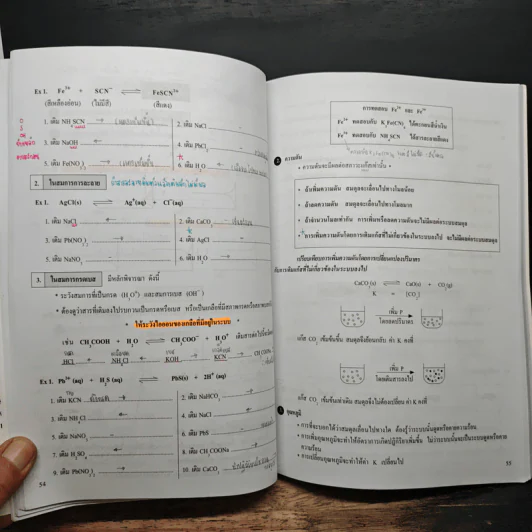 Ex 1. Fe³⁺ + SCN⁻ ⇌ FeSCN²⁺
(สีเหลืองอ่อน) (ไม่มีสี) (สีแดง)
1. เติม NH₄SCN →
2. เติม NaCl
3. เติม NaOH ←
4. เติม PbCl₂
5. เติม Fe(NO₃)₃ →
6. เติม H₂O ←
2. ในสมการการละลาย
Ex 1. AgCl(s) ⇌ Ag⁺(aq) + Cl⁻(aq)
1. เติม NaCl ←
2. เติม CaCO₃
3. เติม Pb(NO₃)₂
4. เติม AgCl -
5. เติม NaNO₃ -
6. เติม H₂O →
3. ในสมการกรดเบส มีหลักพิจารณา ดังนี้
• ระวังสมการที่เป็นกรด (H₃O⁺) และสมการเบส (OH⁻)
• ต้องดูว่าสารที่เติมลงไปรบกวนเป็นกรดหรือเบส หรือเป็นเกลือที่มีสภาพกรดหรือสภาพเบส
* ให้ระวังไอออนของเกลือที่มีอยู่ในระบบ *
เช่น CH₃COOH + H₂O ⇌ CH₃COO⁻ + H₃O⁺
HCl ← NH₄Cl ← KOH → KCN →
Ex 1. Pb²⁺ (aq) + H₂S (aq) ⇌ PbS(s) + 2H⁺ (aq)
1. เติม KCN
2. เติม NaHCO₃
3. เติม NH₄Cl ←
4. เติม NaCl
5. เติม NaNO₃ -
6. เติม PbS -
7. เติม H₂SO₄ ←
8. เติม CH₃COONa
9. เติม Pb(NO₃)₂ →
10. เติม CaCO₃
54
การทดสอบ Fe²⁺ และ Fe³⁺
Fe²⁺ ทดสอบกับ K₃Fe(CN)₆ ได้ตะกอนสีน้ำเงิน
Fe³⁺ ทดสอบกับ NH₄SCN ได้สารละลายสีแดง
2 ความดัน
• ความดันจะมีผลต่อสภาวะแก๊สเท่านั้น •
ถ้าเพิ่มความดัน สมดุลจะเลื่อนไปทางโมลน้อย
ถ้าลดความดัน สมดุลจะเลื่อนไปทางโมลมาก
ถ้าจำนวนโมลเท่ากัน การเพิ่มหรือลดความดันจะไม่มีผลต่อระบบสมดุล
การเพิ่มความดันโดยการเติมแก๊สที่ไม่เกี่ยวข้องในระบบลงไป จะไม่มีผลต่อสมดุล
เปรียบเทียบการเพิ่มความดันโดยการเปลี่ยนแปลงปริมาตร
กับการเติมแก๊สที่ไม่เกี่ยวข้องในระบบลงไป
CaCO₃(s) ⇌ CaO(s) + CO₂(g)
K = [CO₂]
เพิ่ม P
โดยลดปริมาตร
แก๊ส CO₂ เข้มข้นขึ้น สมดุลจึงย้อนกลับ ค่า K คงที่
เพิ่ม P
โดยเติมสารลงไป
แก๊ส CO₂ เข้มข้นเท่าเดิม สมดุลจึงไม่ต้องเปลี่ยน ค่า K คงที่
3 อุณหภูมิ
• การที่จะบอกได้ว่าสมดุลเลื่อนไปทางใด ต้องรู้ว่าระบบนั้นดูดหรือคายความร้อน
• การเพิ่มอุณหภูมิจะทำให้อัตราการเกิดปฏิกิริยาเพิ่มขึ้น ไม่ว่าระบบนั้นจะเป็นระบบดูดหรือคาย
ความร้อน
• การเปลี่ยนอุณหภูมิจะทำให้ค่า K เปลี่ยนไป
55